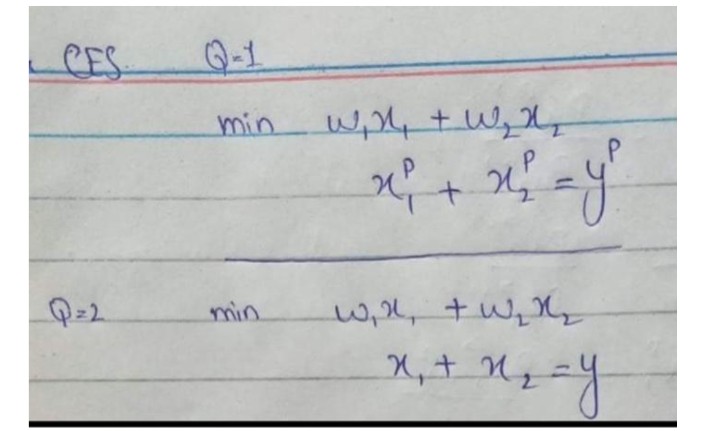 CES Q=1
min w₁x₁ + w₂x₂
x₁ᵖ + x₂ᵖ = yᵖ
Q=2 min w₁x₁ + w₂x₂
x₁ + x₂ = y